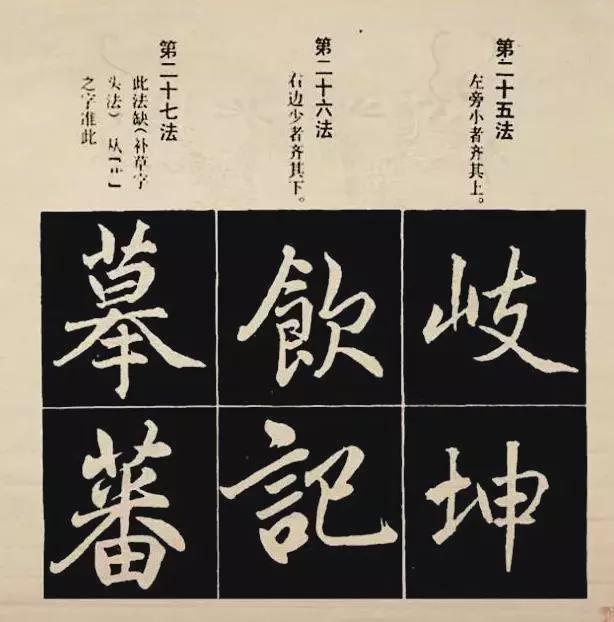 第二十五法
左旁小者齐其上。
岐
坤
第二十六法
右边少者齐其下。
飲
記
第二十七法
此法缺(补草字
头法) 从【艹】
之字准此
摹
蕃